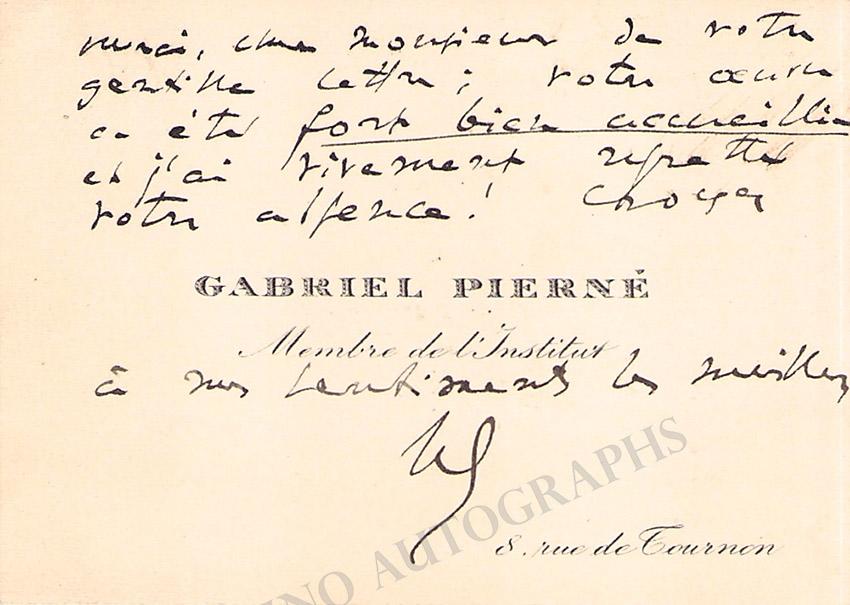 merci, cher monsieur de votre
gentille lettre ; votre œuvre
a été fort bien accueillie
et j'ai vivement regretté
votre absence ! Croyez
GABRIEL PIERNÉ
Membre de l'Institut
à mes sentiments les meilleurs
8, rue de Tournon
INO AUTOGRAPHS